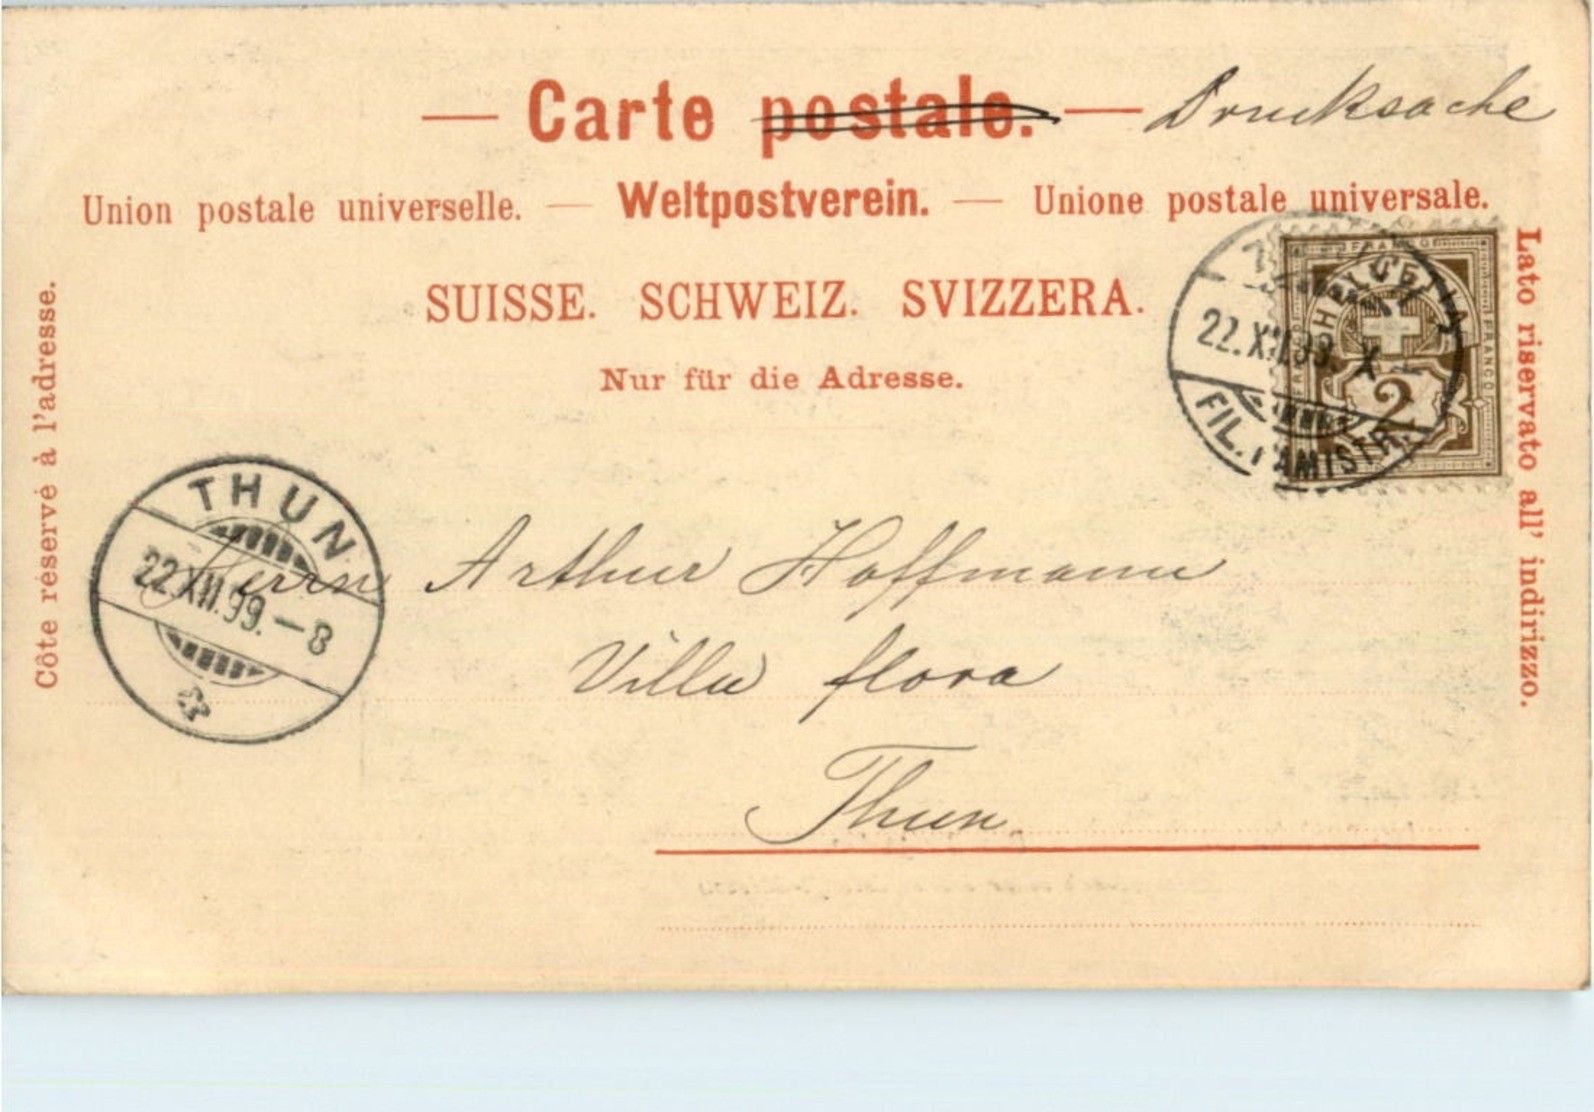 — Carte postale. — Drucksache
Union postale universelle. — Weltpostverein. — Unione postale universale.
SUISSE. SCHWEIZ. SVIZZERA.
Nur für die Adresse.
Côte réservé à l'adresse.
Lato riservato all' indirizzo.
FRANCO
FRANCO
2
22.XII.99. X
THUN
22.XII.99.–8
Herrn Arthur Hoffmann
Villa flora
Thun